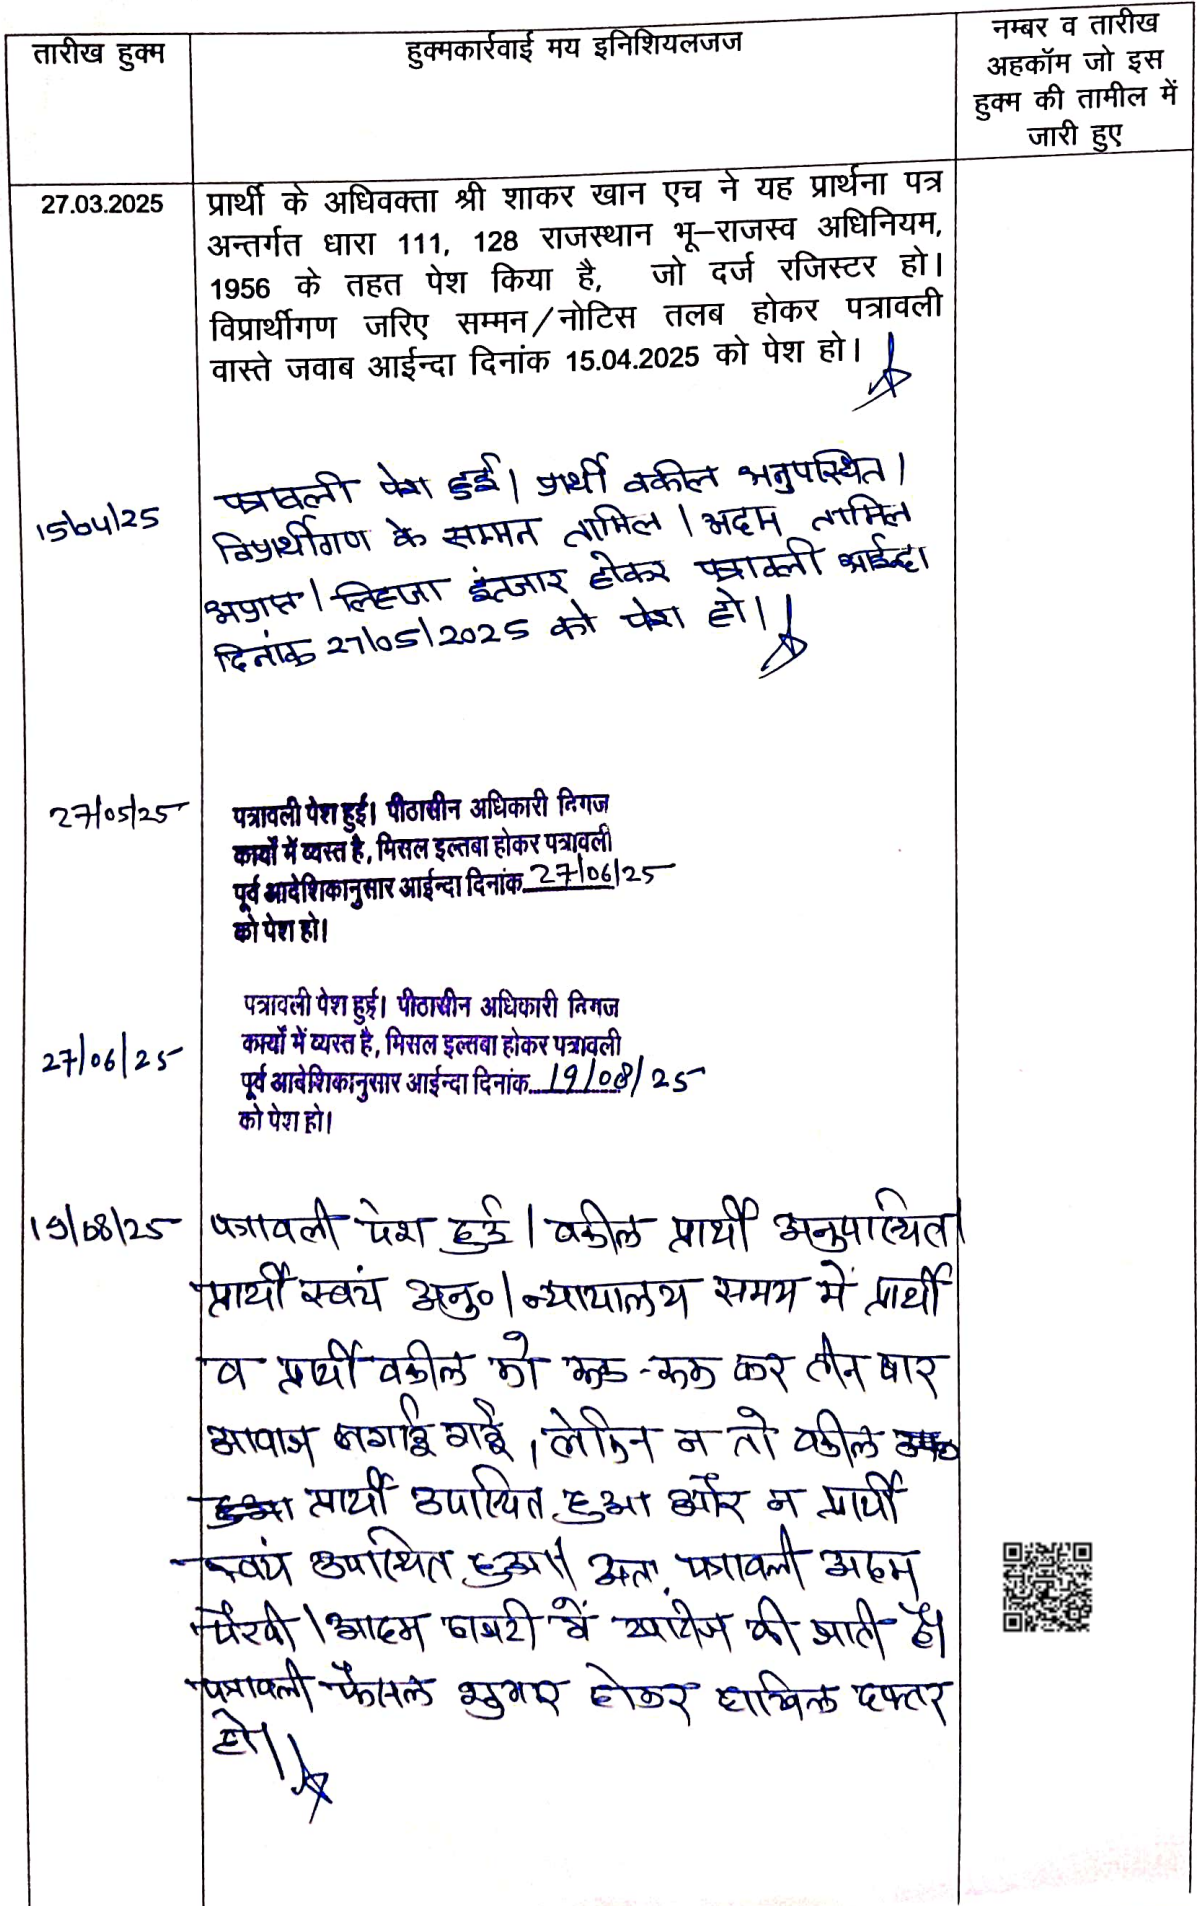 तारीख हुक्म
हुक्मकार्रवाई मय इनिशियलजज
नम्बर व तारीख
अहकॉम जो इस
हुक्म की तामील में
जारी हुए
27.03.2025
प्रार्थी के अधिवक्ता श्री शाकर खान एच ने यह प्रार्थना पत्र
अन्तर्गत धारा 111, 128 राजस्थान भू–राजस्व अधिनियम,
1956 के तहत पेश किया है, जो दर्ज रजिस्टर हो।
विप्रार्थीगण जरिए सम्मन/नोटिस तलब होकर पत्रावली
वास्ते जवाब आईन्दा दिनांक 15.04.2025 को पेश हो।
15/04/25
पत्रावली पेश हुई। प्रार्थी वकील अनुपस्थित।
विप्रार्थीगण के सम्मन तामिल। अदम तामिल
अप्राप्त। लिहाजा इंतजार होकर पत्रावली आईन्दा
दिनांक 27/05/2025 को पेश हो।
27/05/25
पत्रावली पेश हुई। पीठासीन अधिकारी निगज
कार्यों में व्यस्त है, मिसल इल्तबा होकर पत्रावली
पूर्व आदेशिकानुसार आईन्दा दिनांक 27/06/25
को पेश हो।
27/06/25
पत्रावली पेश हुई। पीठासीन अधिकारी निगज
कार्यों में व्यस्त है, मिसल इल्तबा होकर पत्रावली
पूर्व आदेशिकानुसार आईन्दा दिनांक 19/08/25
को पेश हो।
19/08/25
पत्रावली पेश हुई। वकील प्रार्थी अनुपस्थित।
प्रार्थी स्वयं अनु०। न्यायालय समय में प्रार्थी
व प्रार्थी वकील को रूक-रूक कर तीन बार
आवाज लगाई गई, लेकिन न तो वकील
प्रार्थी उपस्थित हुआ और न प्रार्थी
स्वयं उपस्थित हुआ। अतः पत्रावली अदम
पैरवी। आदम हाजरी में खारीज की जाती है।
पत्रावली फैसल शुमार होकर दाखिल दफ्तर
हो।